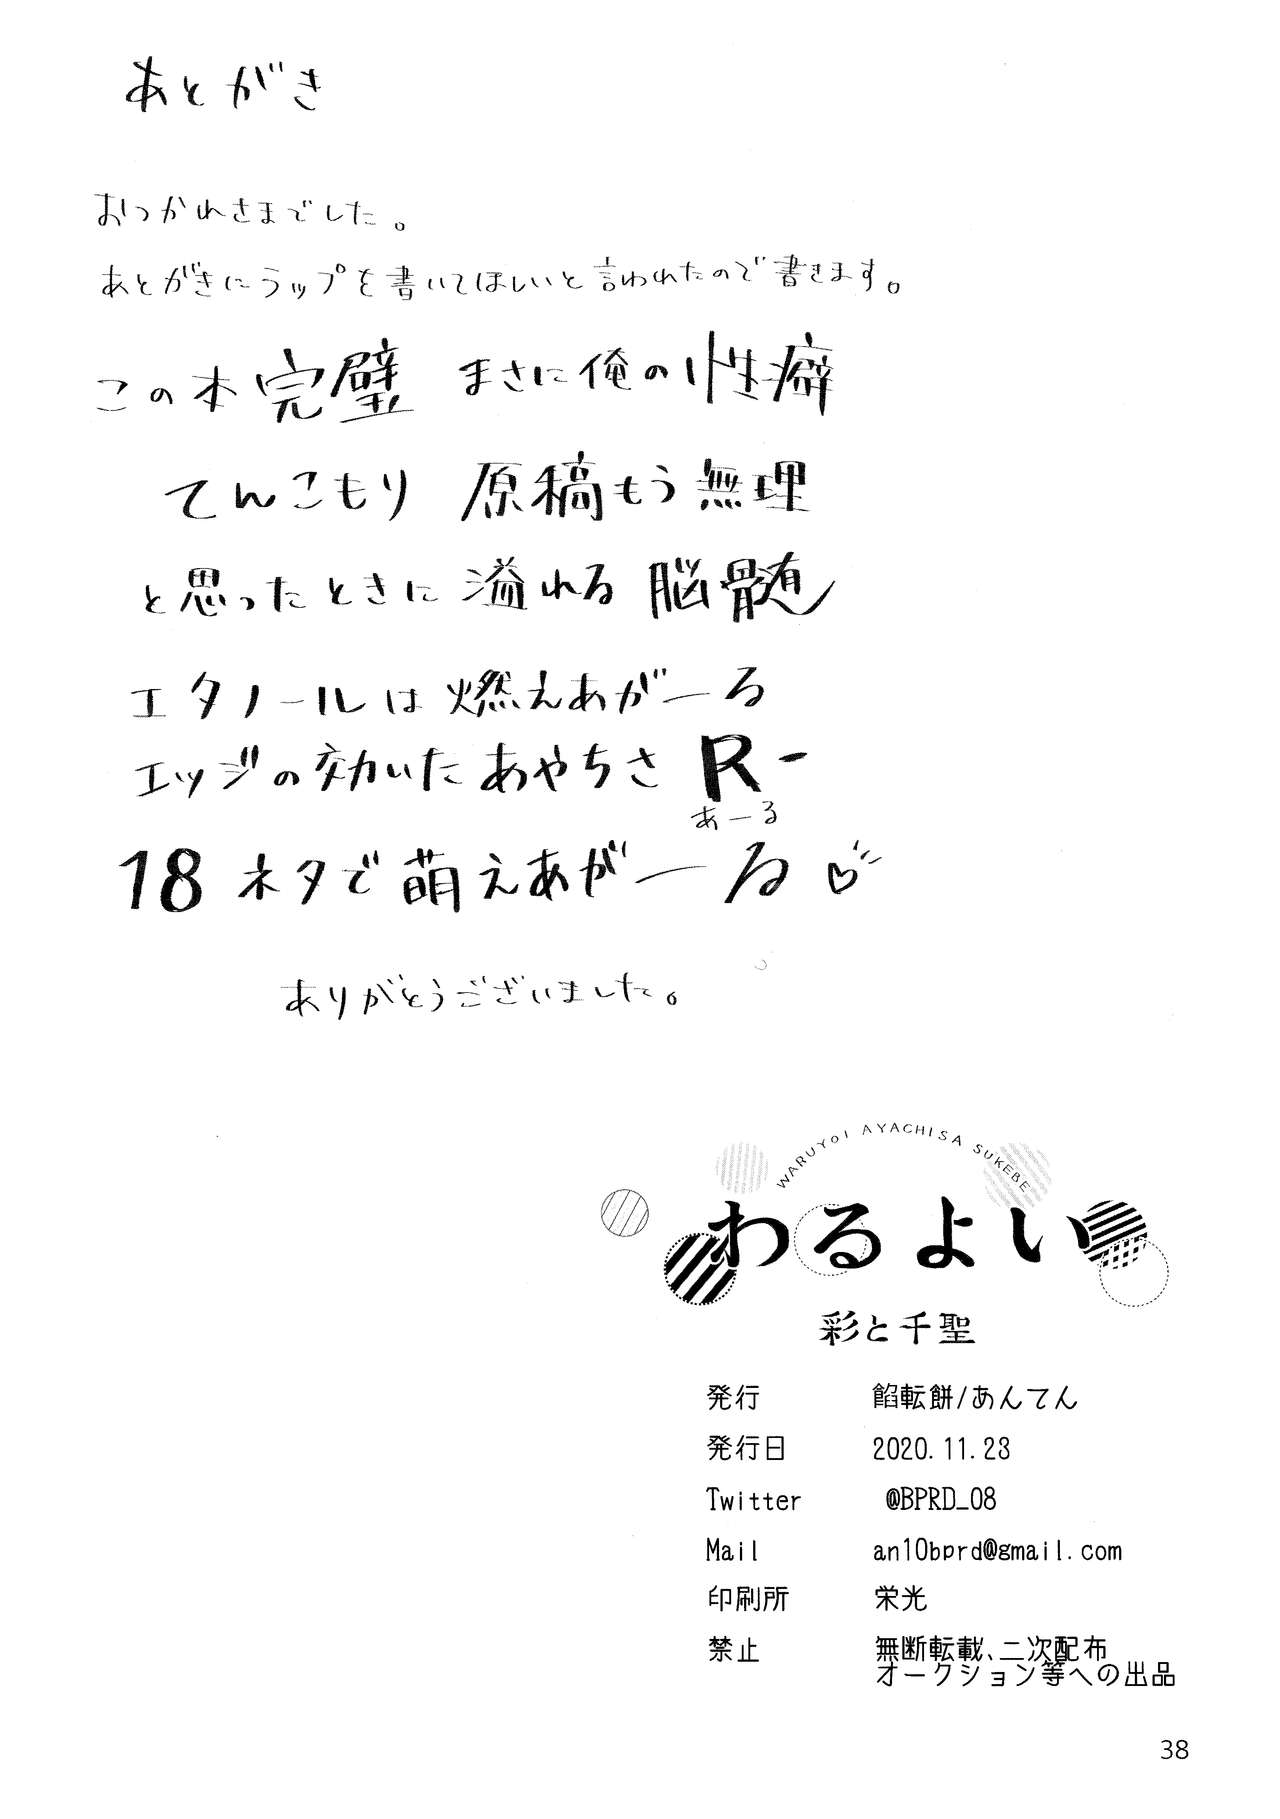 あとがき
おつかれさまでした。
あとがきにラップを書いてほしいと言われたので書きます。
この本完璧 まさに俺の性癖
てんこもり 原稿もう無理
と思ったときに 溢れる 脳髄
エタノールは燃えあがーる
エッジの効いたあやちさ R-
あーる
18 ネタで萌えあがーる♡
ありがとうございました。
WARUYOI AYACHISA SUKEBE
わるよい
彩と千聖
発行 餡転餅/あんてん
発行日 2020.11.23
Twitter @BPRD_08
Mail an10bprd@gmail.com
印刷所 栄光
禁止 無断転載、二次配布
オークション等への出品
38